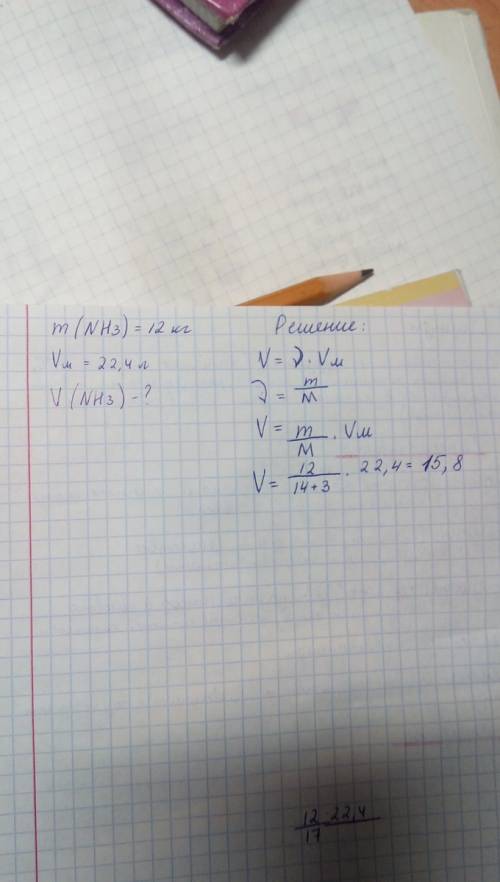 m (NH3) = 12 кг
Vм = 22,4 л
V (NH3) - ?
Решение:
V = ν · Vм
ν = m/M
V = m/M · Vм
V = 12/14+3 · 22,4 = 15,8
12·22,4/17